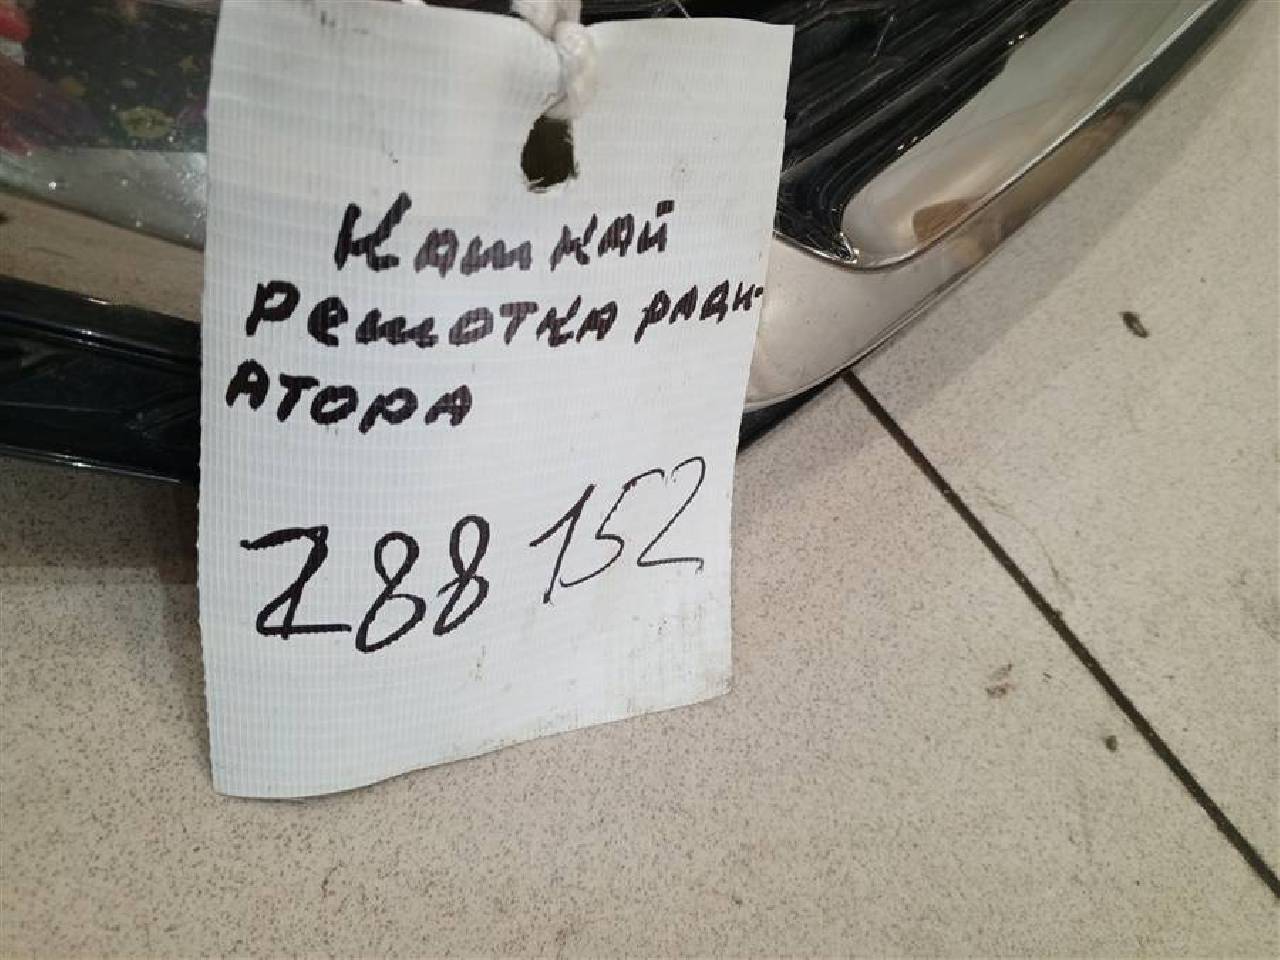 Кашкай
Решотка ради-
атора
288152